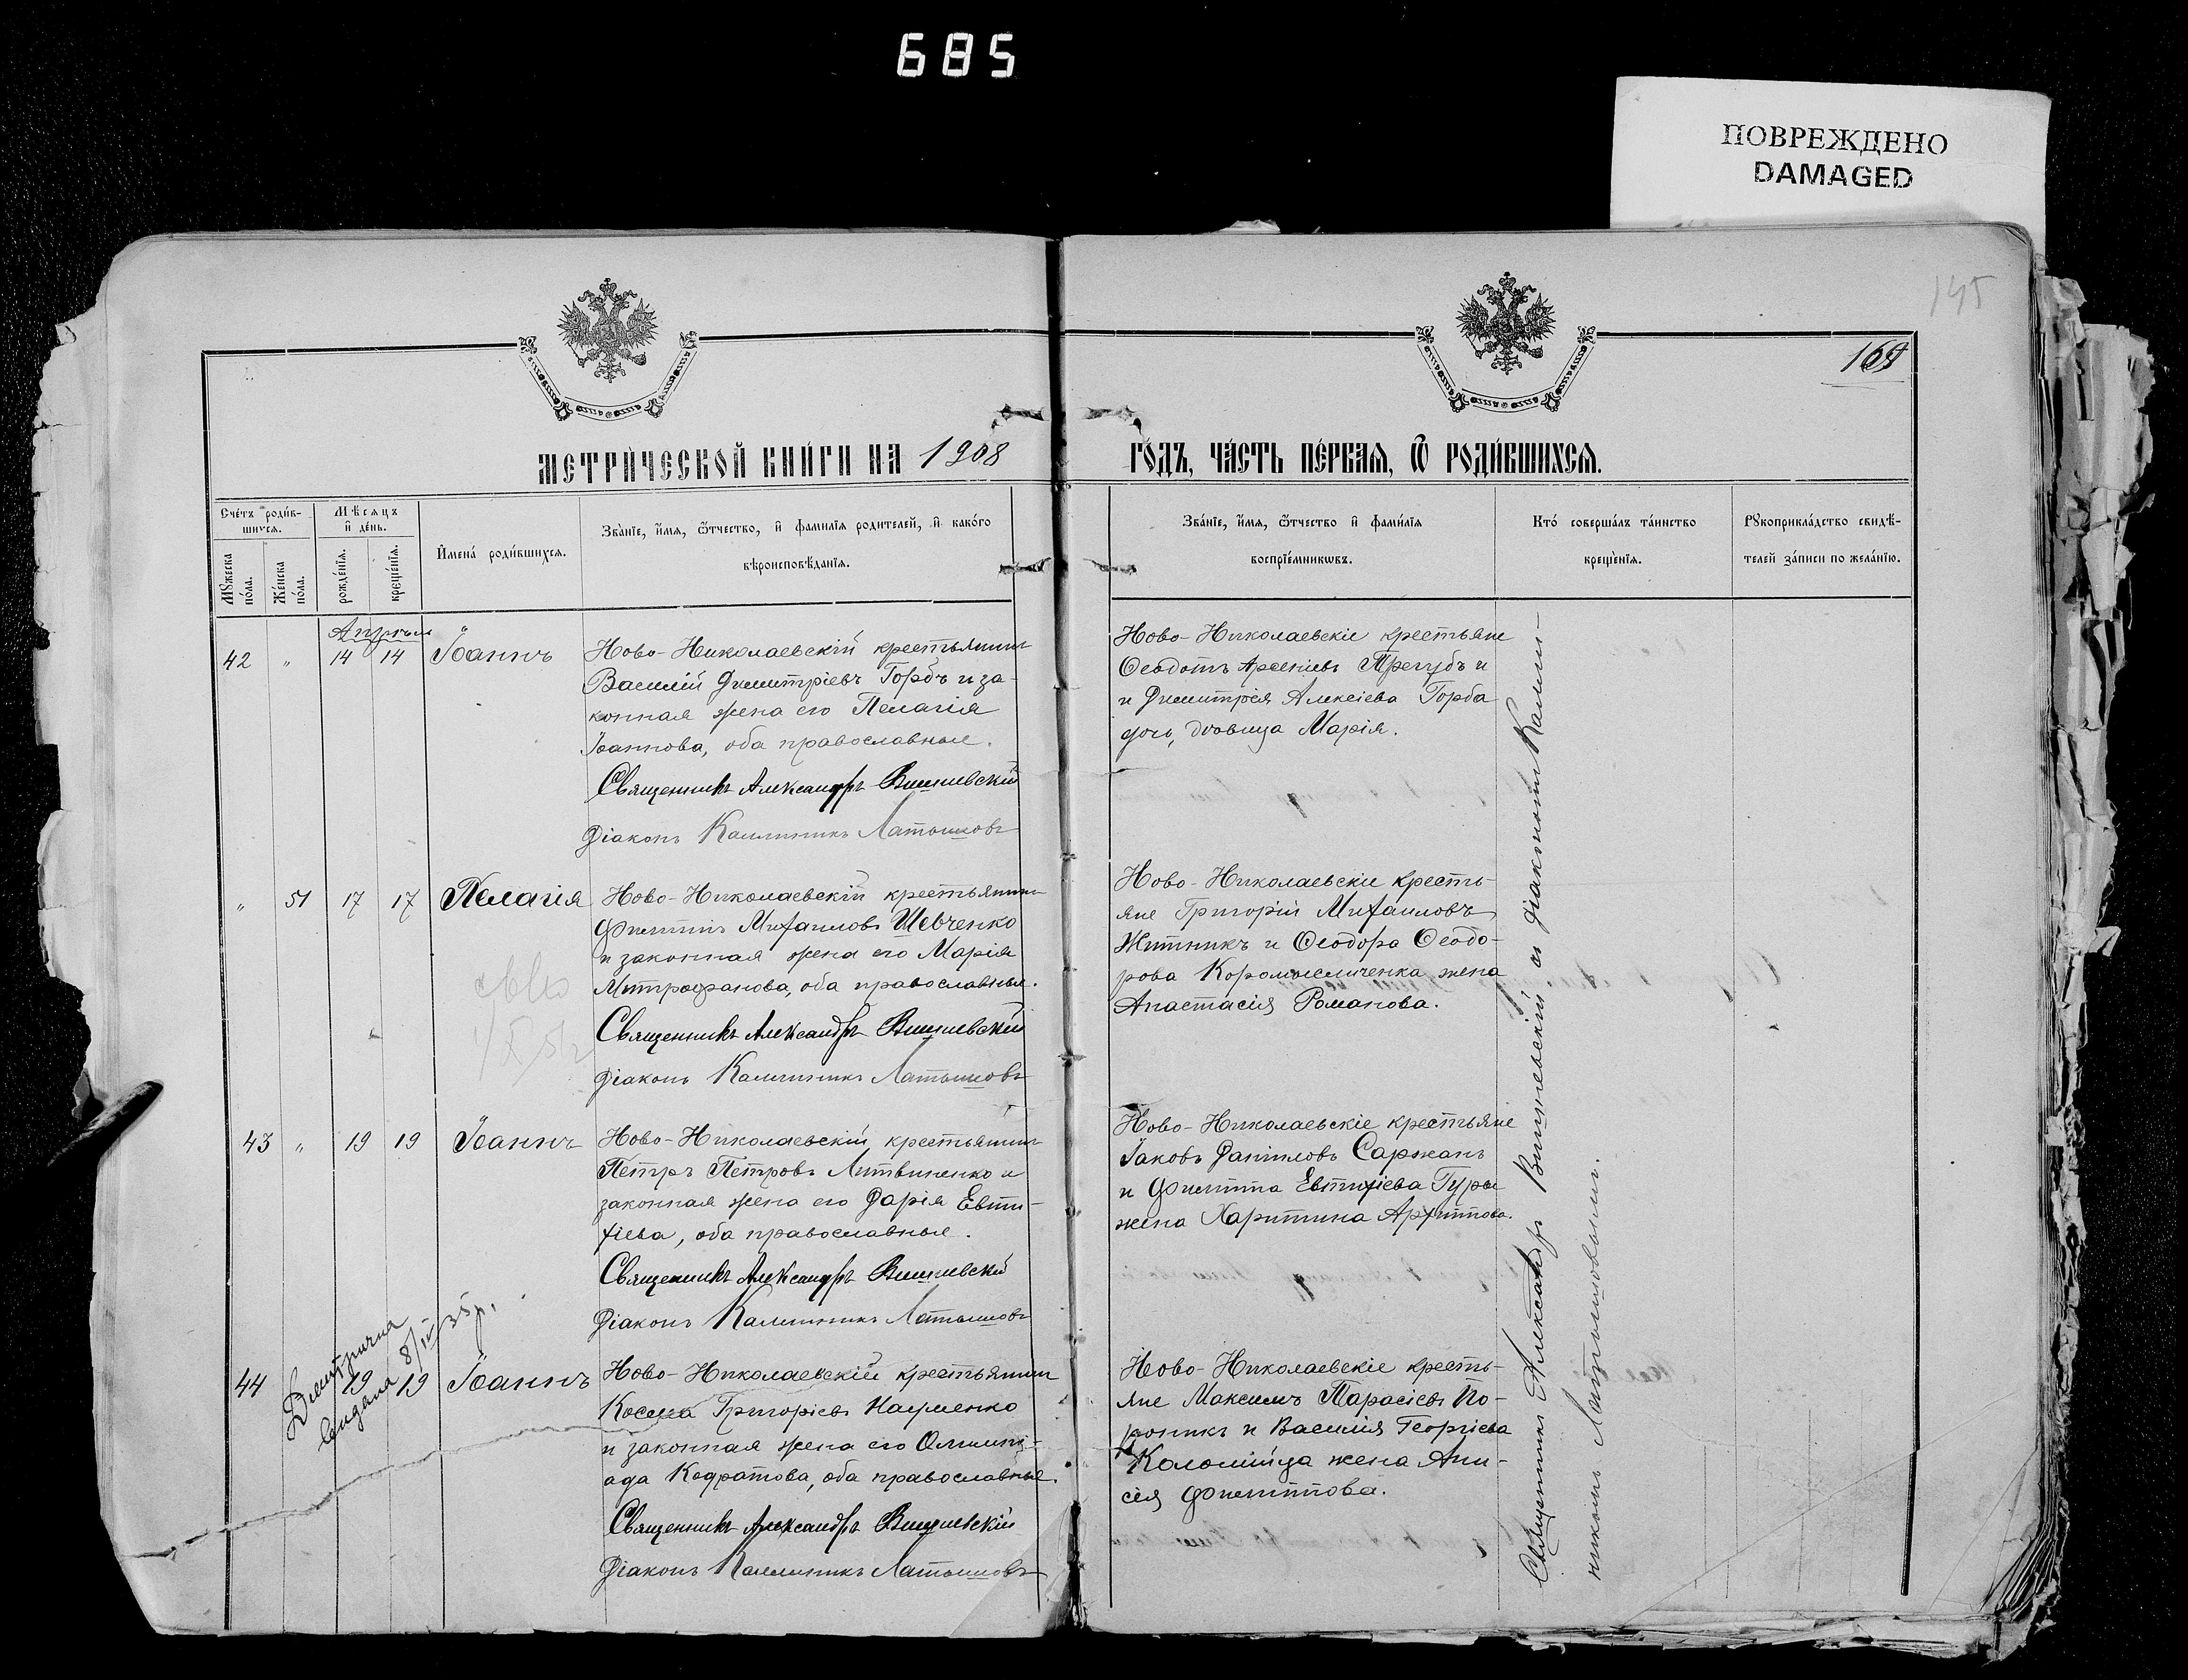 685
ПОВРЕЖДЕНО
DAMAGED
145
МЕТРИЧЕСКОЙ КНИГИ НА 1908
ГОДЪ, ЧАСТЬ ПЕРВАЯ, Ѿ РОДИВШИХСЯ.
Счетъ родив-
шихся.
Мужеска
пола.
Женска
пола.
Мѣсяцъ
и день.
рожденїя.
крещенїя.
Имена родившихся.
Званїе, имя, ѿтчество, и фамилїя родителей, и какого
вѣроисповѣданїя.
Званїе, имя, ѿтчество и фамилїя
воспрїемникѡвъ.
Кто совершалъ таинство
крещенїя.
Рукоприкладство свидѣ-
телей записи по желанїю.
Апрѣль
42 " 14 14 Іоаннъ
Ново-Николаевскій крестьянинъ
Василій Димитріевъ Горбъ и за-
конная жена его Пелагія
Іоаннова, оба православные.
Священникъ Александръ Вишневскій
Діаконъ Каллиникъ Латышовъ
Ново-Николаевскіе крестьяне
Ѳеодотъ Арсеніевъ Трегубъ и
и Димитрія Алексіева Горба
дочь, вдовица Марія.
" 51 17 17 Пелагія
Ново-Николаевскій крестьянинъ
Филиппъ Михаиловъ Шевченко
и законная жена его Марія
Митрофанова, оба православные.
Священникъ Александръ Вишневскій
Діаконъ Каллиникъ Латышовъ
Ново-Николаевскіе кресть-
яне Григорій Михаиловъ
Житникъ и Ѳеодора Ѳеодо-
рова Коромысличенка жена
Анастасія Романова.
43 " 19 19 Іоаннъ
Ново-Николаевскій крестьянинъ
Петръ Петровъ Литвиненко и
законная жена его Дарія Евти-
хіева, оба православные.
Священникъ Александръ Вишневскій
Діаконъ Каллиникъ Латышовъ
Ново-Николаевскіе крестьяне
Іаковъ Даниловъ Саржанъ
и Филиппа Евтихіева Гуры
жена Харитина Архиппова.
Диметрична
видана 8/IV 35 р.
44 19 19 Іоаннъ
Ново-Николаевскій крестьянинъ
Косма Григоріевъ Науменко
и законная жена его Олимпі-
ада Кодратова, оба православные.
Священникъ Александръ Вишневскій
Діаконъ Каллиникъ Латышовъ
Ново-Николаевскіе кресть-
яне Максимъ Тарасіевъ По-
роникъ и Василія Георгіева
Коломійца жена Ани-
сія Филиппова.
Священникъ Александръ Вишневскій съ діакономъ Калли-
никомъ Латышовымъ.